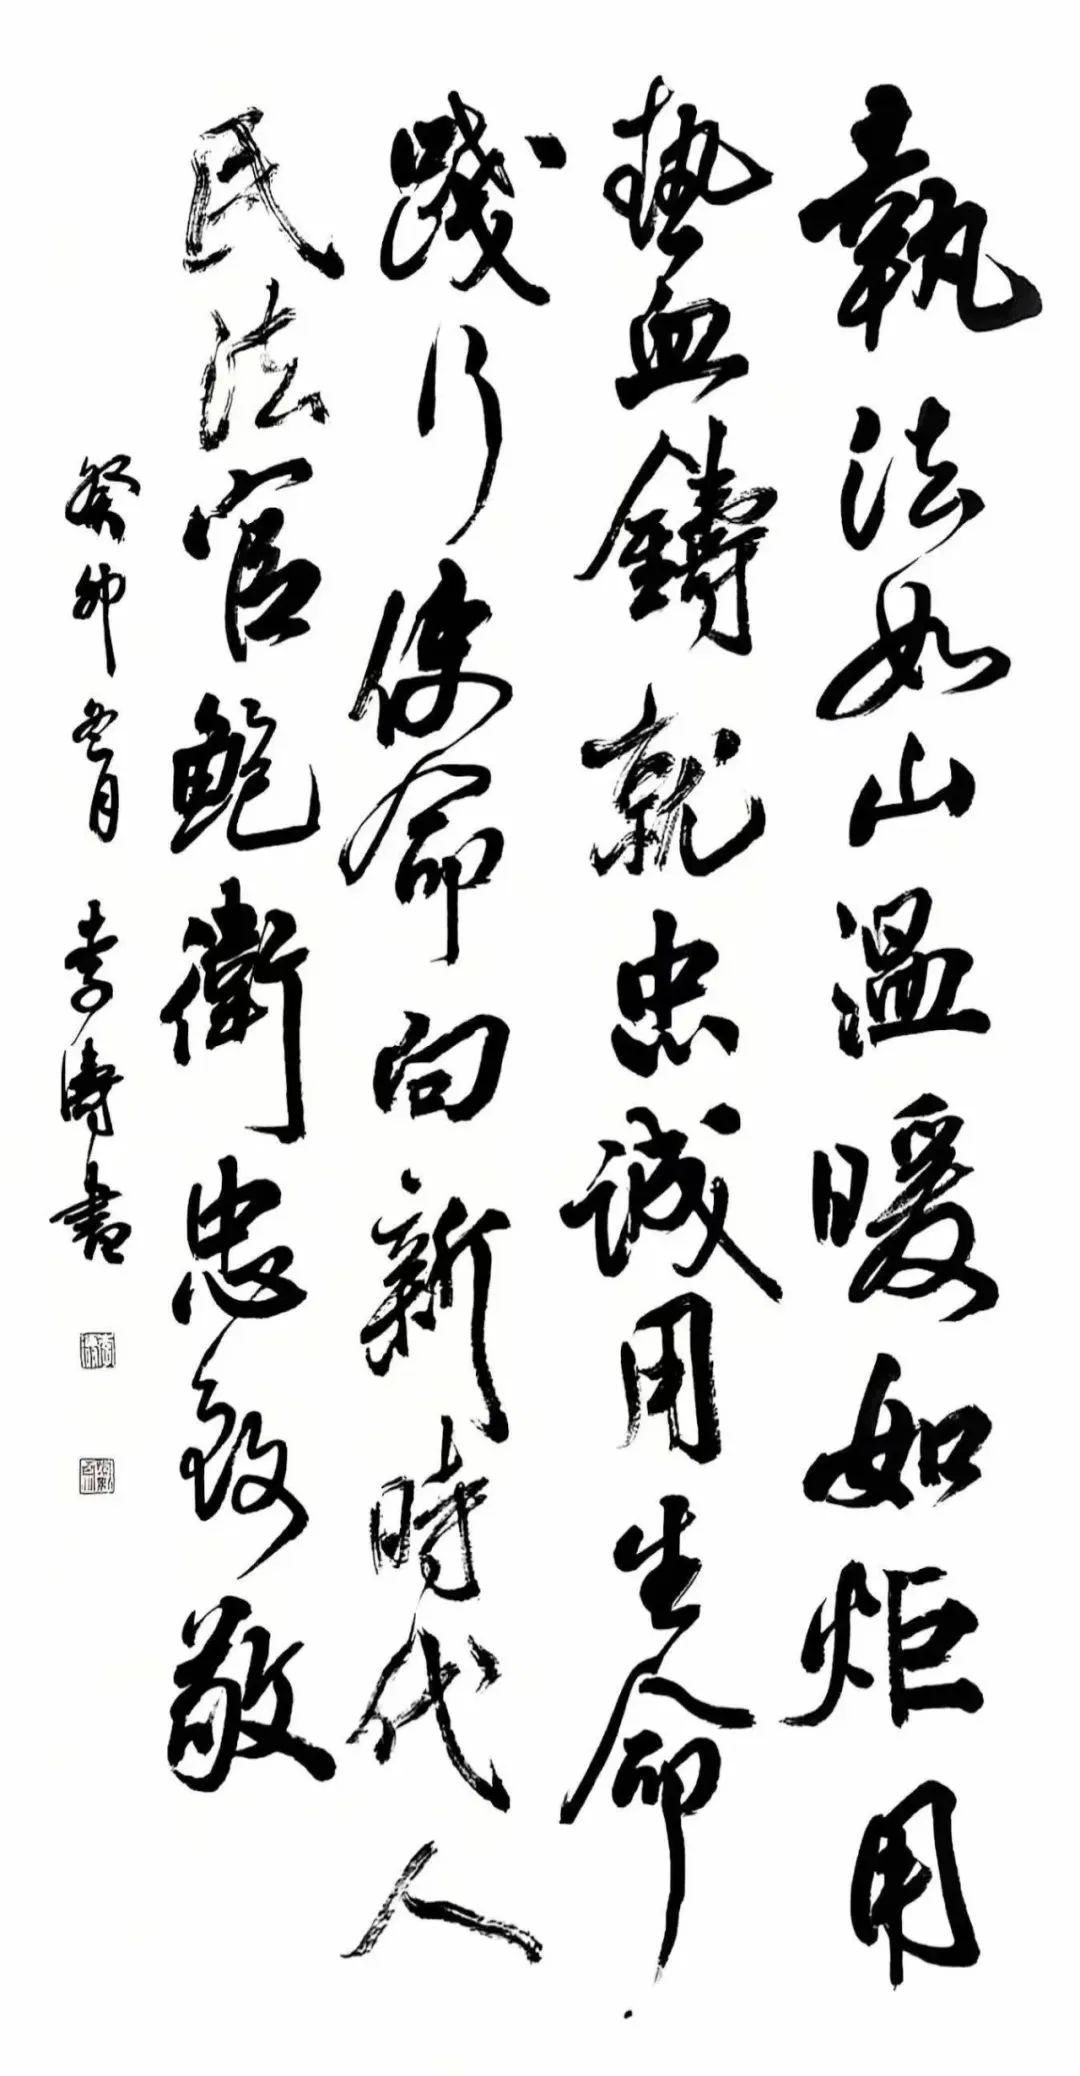 執法如山溫暖如炬用
熱血鑄就忠誠用生命
踐行使命向新時代人
民法官鮑衛忠致敬
癸卯冬月 李濤書